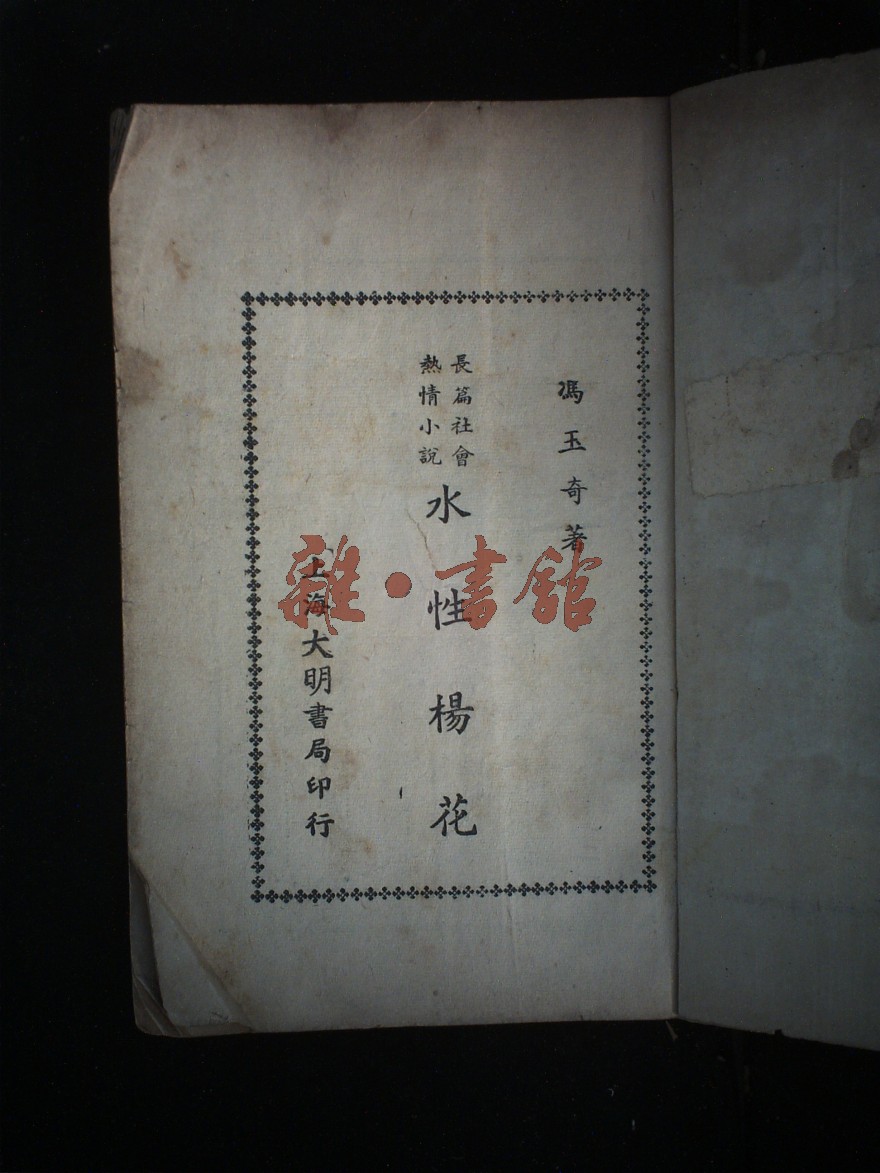 馮玉奇著
長篇社會
熱情小說
水性楊花
上海大明書局印行
雜·書館